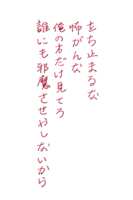 立ち止まるな
怖がんな
俺の方だけ見てろ
誰にも邪魔させやしないから